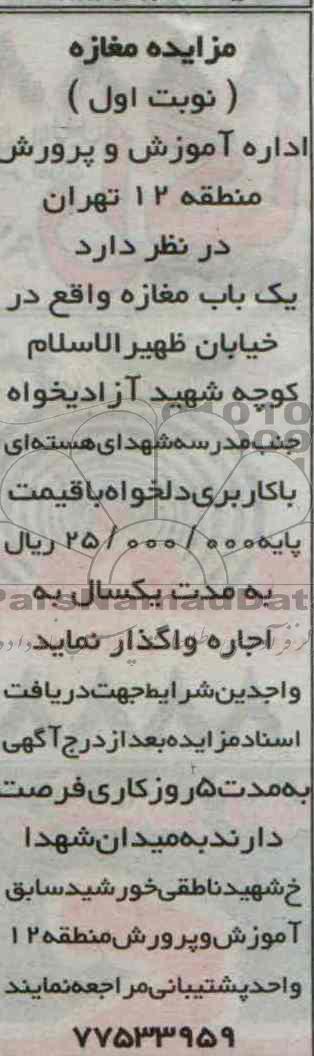 مزایده مغازه
( نوبت اول )
اداره آموزش و پرورش
منطقه ۱۲ تهران
در نظر دارد
یک باب مغازه واقع در
خیابان ظهیرالاسلام
کوچه شهید آزادیخواه
جنب مدرسه شهدای هسته‌ای
با کاربری دلخواه با قیمت
پایه ۲۵/۰۰۰/۰۰۰ ریال
به مدت یکسال به
ParsNamadData
اجاره واگذار نماید
واجدین شرایط جهت دریافت
اسناد مزایده بعد از درج آگهی
به مدت ۵ روز کاری فرصت
دارند به میدان شهدا
خ شهید ناطقی خورشید سابق
آموزش و پرورش منطقه ۱۲
واحد پشتیبانی مراجعه نمایند
۷۷۵۳۳۹۵۹